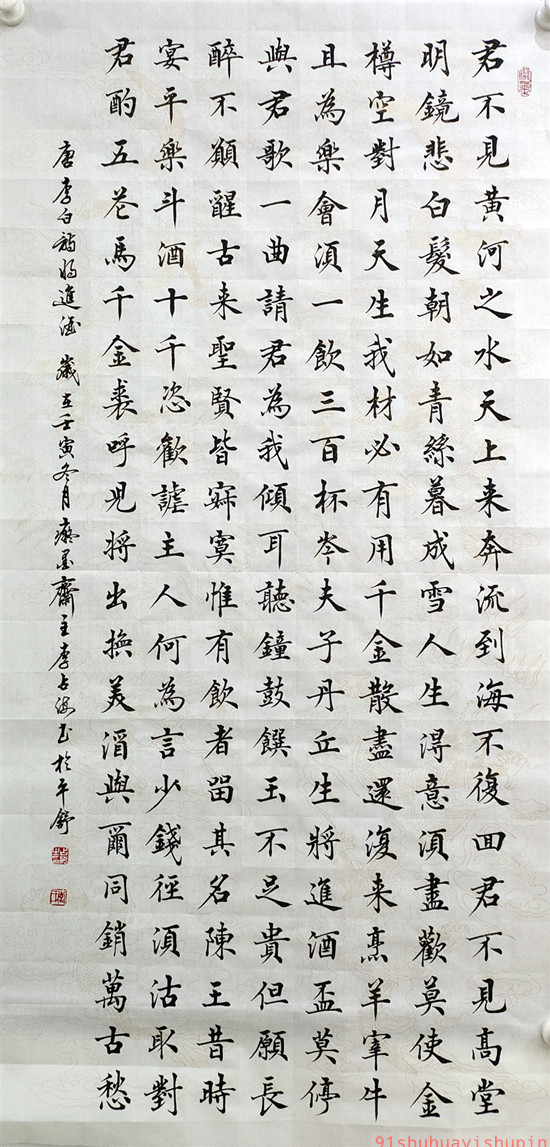 君不見黄河之水天上来奔流到海不復回君不見高堂
明鏡悲白髮朝如青絲暮成雪人生得意須盡歡莫使金
樽空對月天生我材必有用千金散盡還復来烹羊宰牛
且為樂會須一飲三百杯岑夫子丹丘生將進酒盃莫停
與君歌一曲請君為我傾耳聽鐘鼓饌玉不足貴但願長
醉不願醒古来聖賢皆寂寞惟有飲者留其名陳王昔時
宴平樂斗酒十千恣歡謔主人何為言少錢徑須沽取對
君酌五花馬千金裘呼兒將出換美酒與爾同銷萬古愁
唐李白詩將進酒 歲在壬寅冬月痴墨齋主李占海書於平舒
91shuhuayishupin